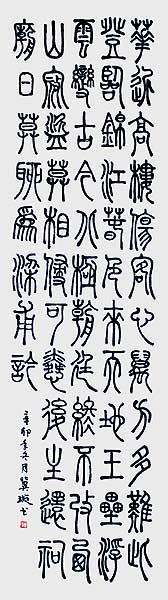 華近高樓傷客心萬方多難此
登臨錦江春色來天地玉壘浮
雲變古今北極朝廷終不改西
山寇盜莫相侵可憐後主還祠
廟日莫聊為梁甫訡
辛卯年月冀璇书